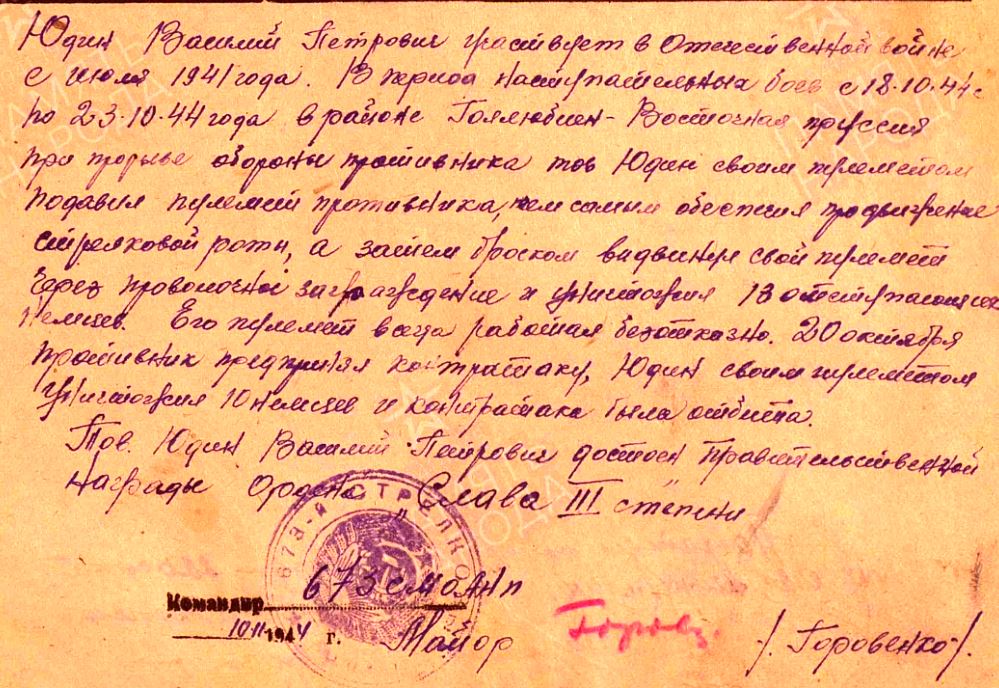 Юдин Василий Петрович участвует в Отечественной войне
с июля 1941 года. В период наступательных боев с 18.10.44г
по 23.10.44 года в районе Гоялюбиен - Восточная пруссия
при прорыве обороны противника тов Юдин своим пулеметом
подавил пулемет противника, тем самым обеспечил продвижение
стрелковой роты, а затем броском выдвинув свой пулемет
через проволочное заграждение и уничтожил 13 отступающих
немцев. Его пулемет всегда работал безотказно. 20 октября
противник предпринял контратаку, Юдин своим пулеметом
уничтожил 10 немцев и контратака была отбита.
Тов. Юдин Василий Петрович достоен правительственной
награды Ордена „Слава III степени
673-Й СТРЕЛКО
673 СМОЛ НП
Командир
10.11.1944 г. Майор Горов. /. Горовенко /.